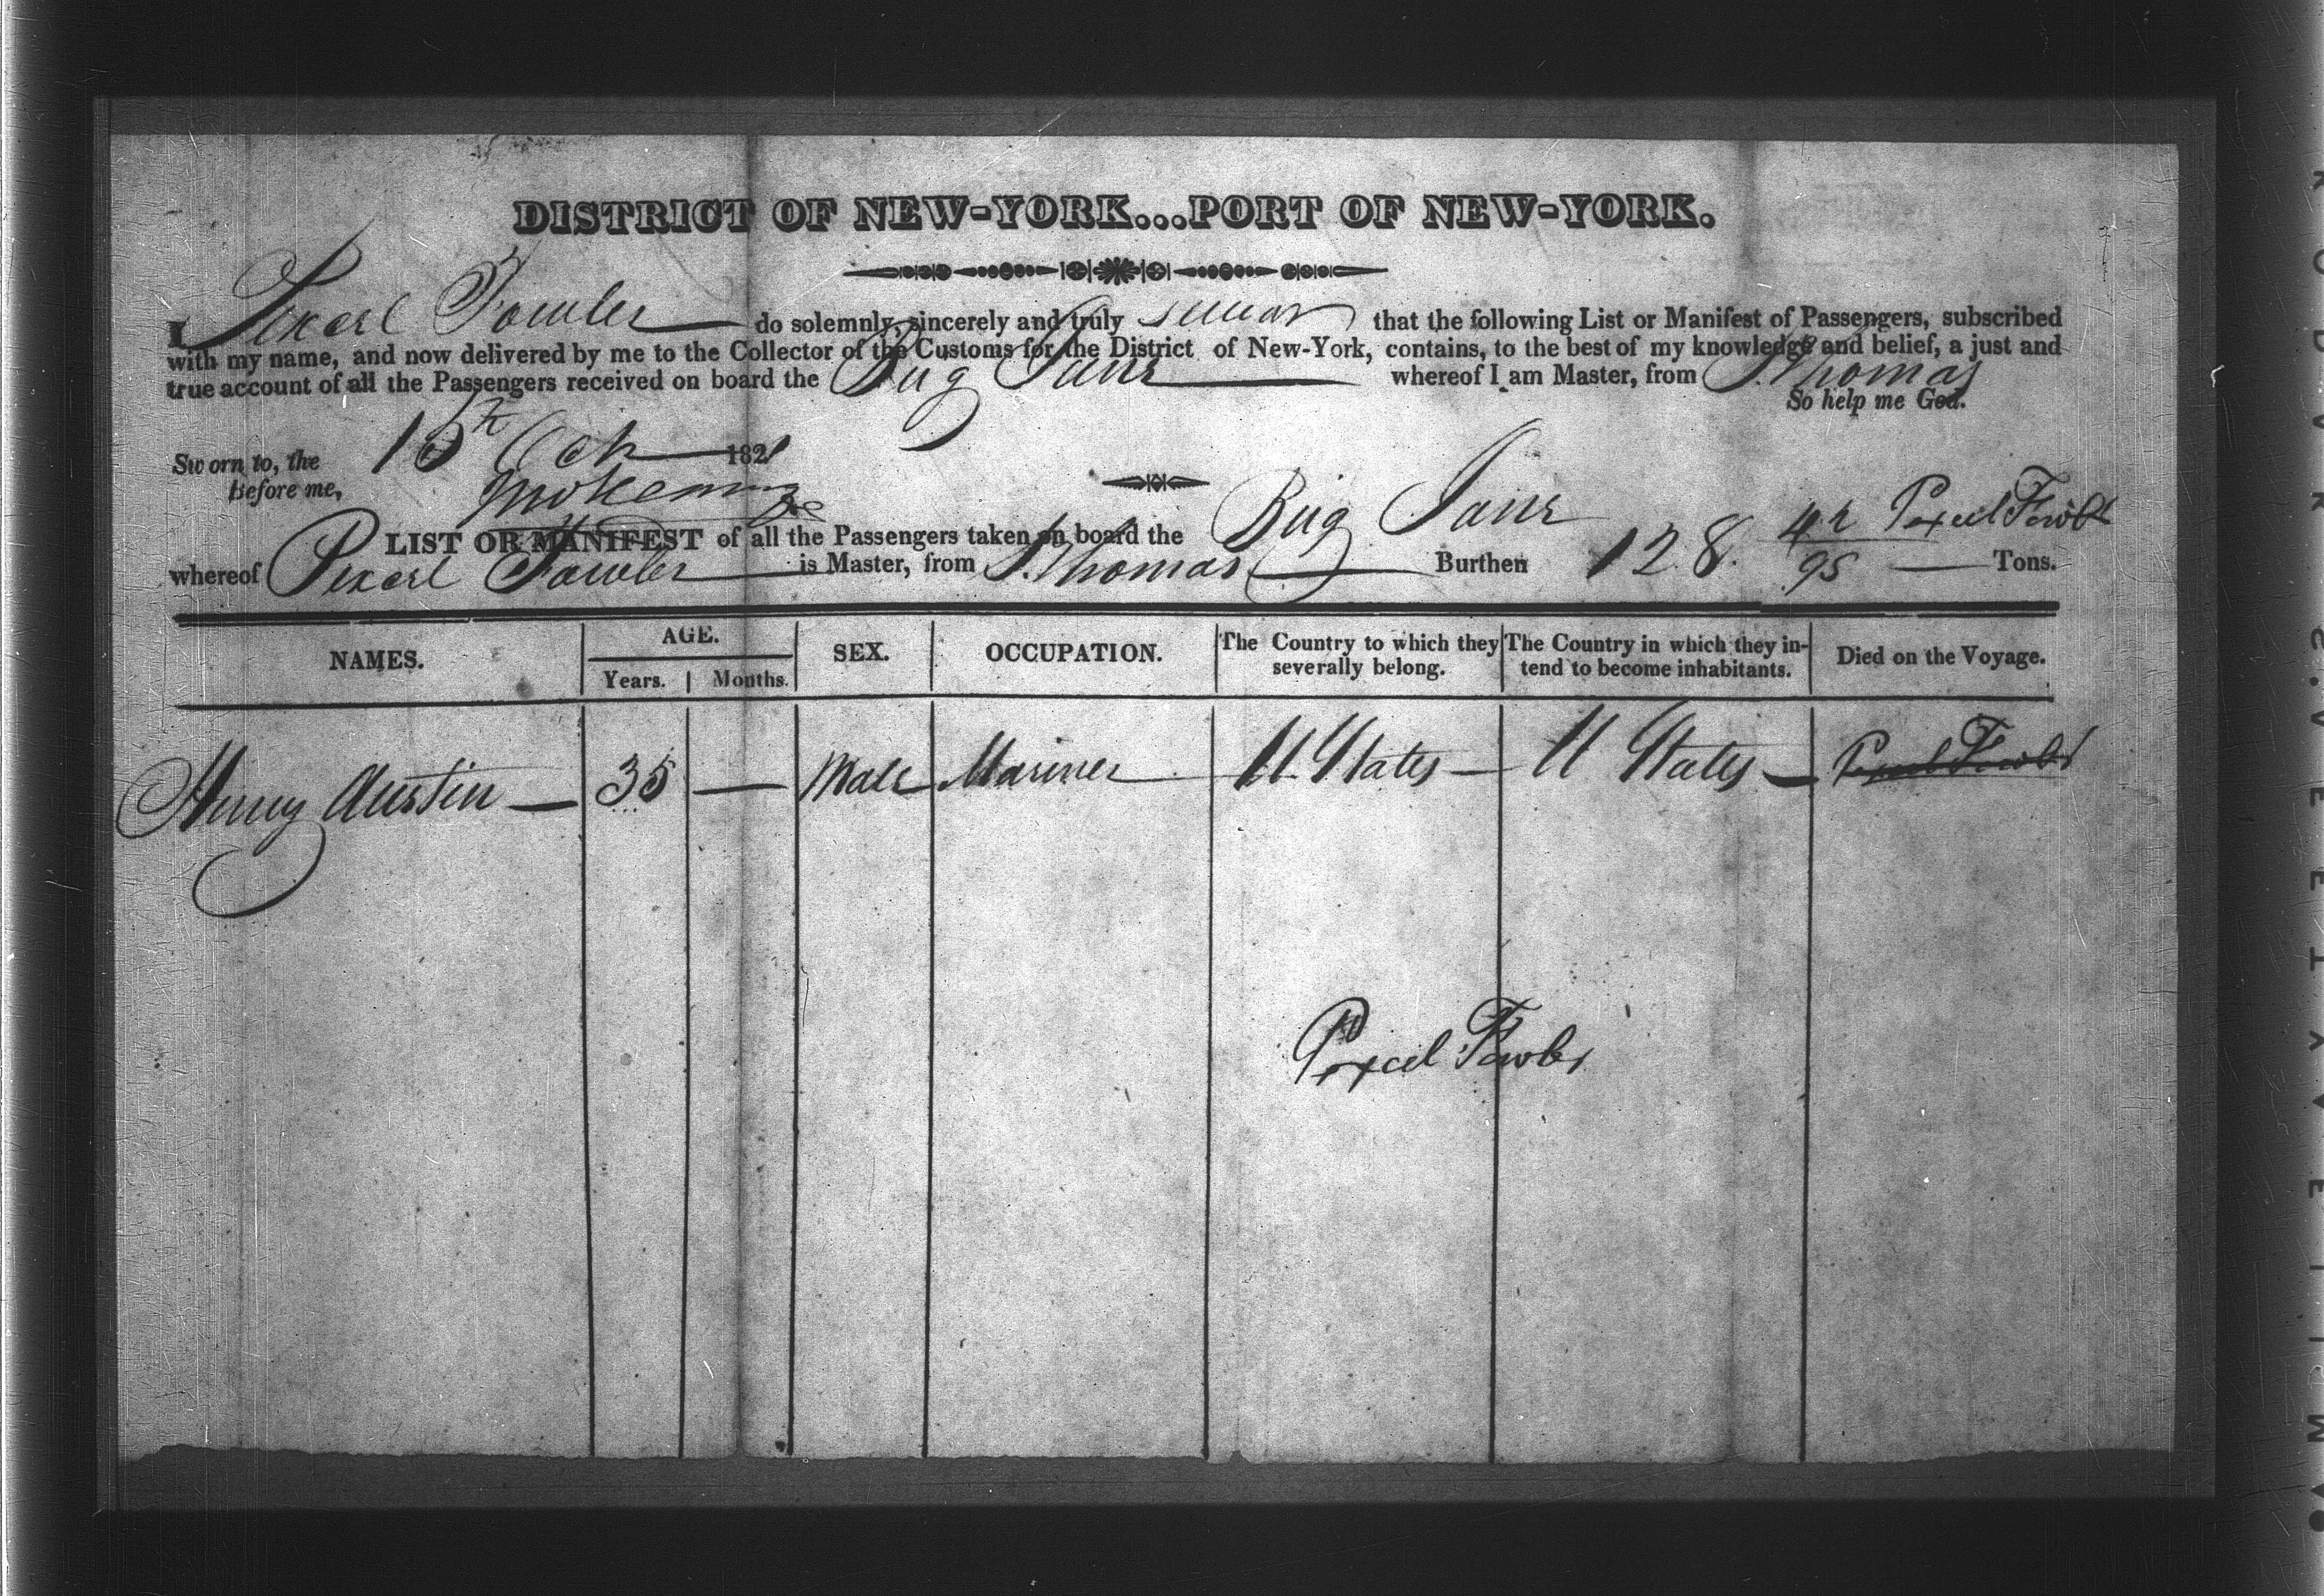 DISTRICT OF NEW-YORK...PORT OF NEW-YORK.
I Pexcel Fowler do solemnly, sincerely and truly swear that the following List or Manifest of Passengers, subscribed
with my name, and now delivered by me to the Collector of the Customs for the District of New-York, contains, to the best of my knowledge and belief, a just and
true account of all the Passengers received on board the Brig Jane whereof I am Master, from St. Thomas
So help me God.
Sworn to, the 15th Oct 1821
Before me,
LIST OR MANIFEST of all the Passengers taken on board the Brig Jane
whereof Pexcel Fowler is Master, from St. Thomas Burthen 128. 42/95 Tons.
Pexcel Fowler
NAMES. AGE. Years. Months. SEX. OCCUPATION. The Country to which they severally belong. The Country in which they intend to become inhabitants. Died on the Voyage.
Henry Austin — 35 — Male Mariner U States — U States — Pexcel Fowler
Pexcel Fowler